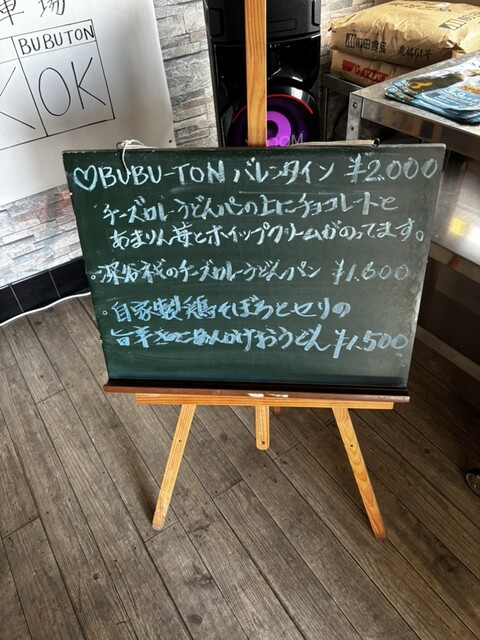 車場
BUBUTON
OK
♡BUBU-TON バレンタイン ¥2,000
チーズカレーうどんパンの上にチョコレートと
あまりん苺とホイップクリームがのってます。
・深谷ねぎのチーズカレーうどんパン ¥1,600
・自家製鶏そぼろとセリの
旨辛きのこあんかけおうどん ¥1,500